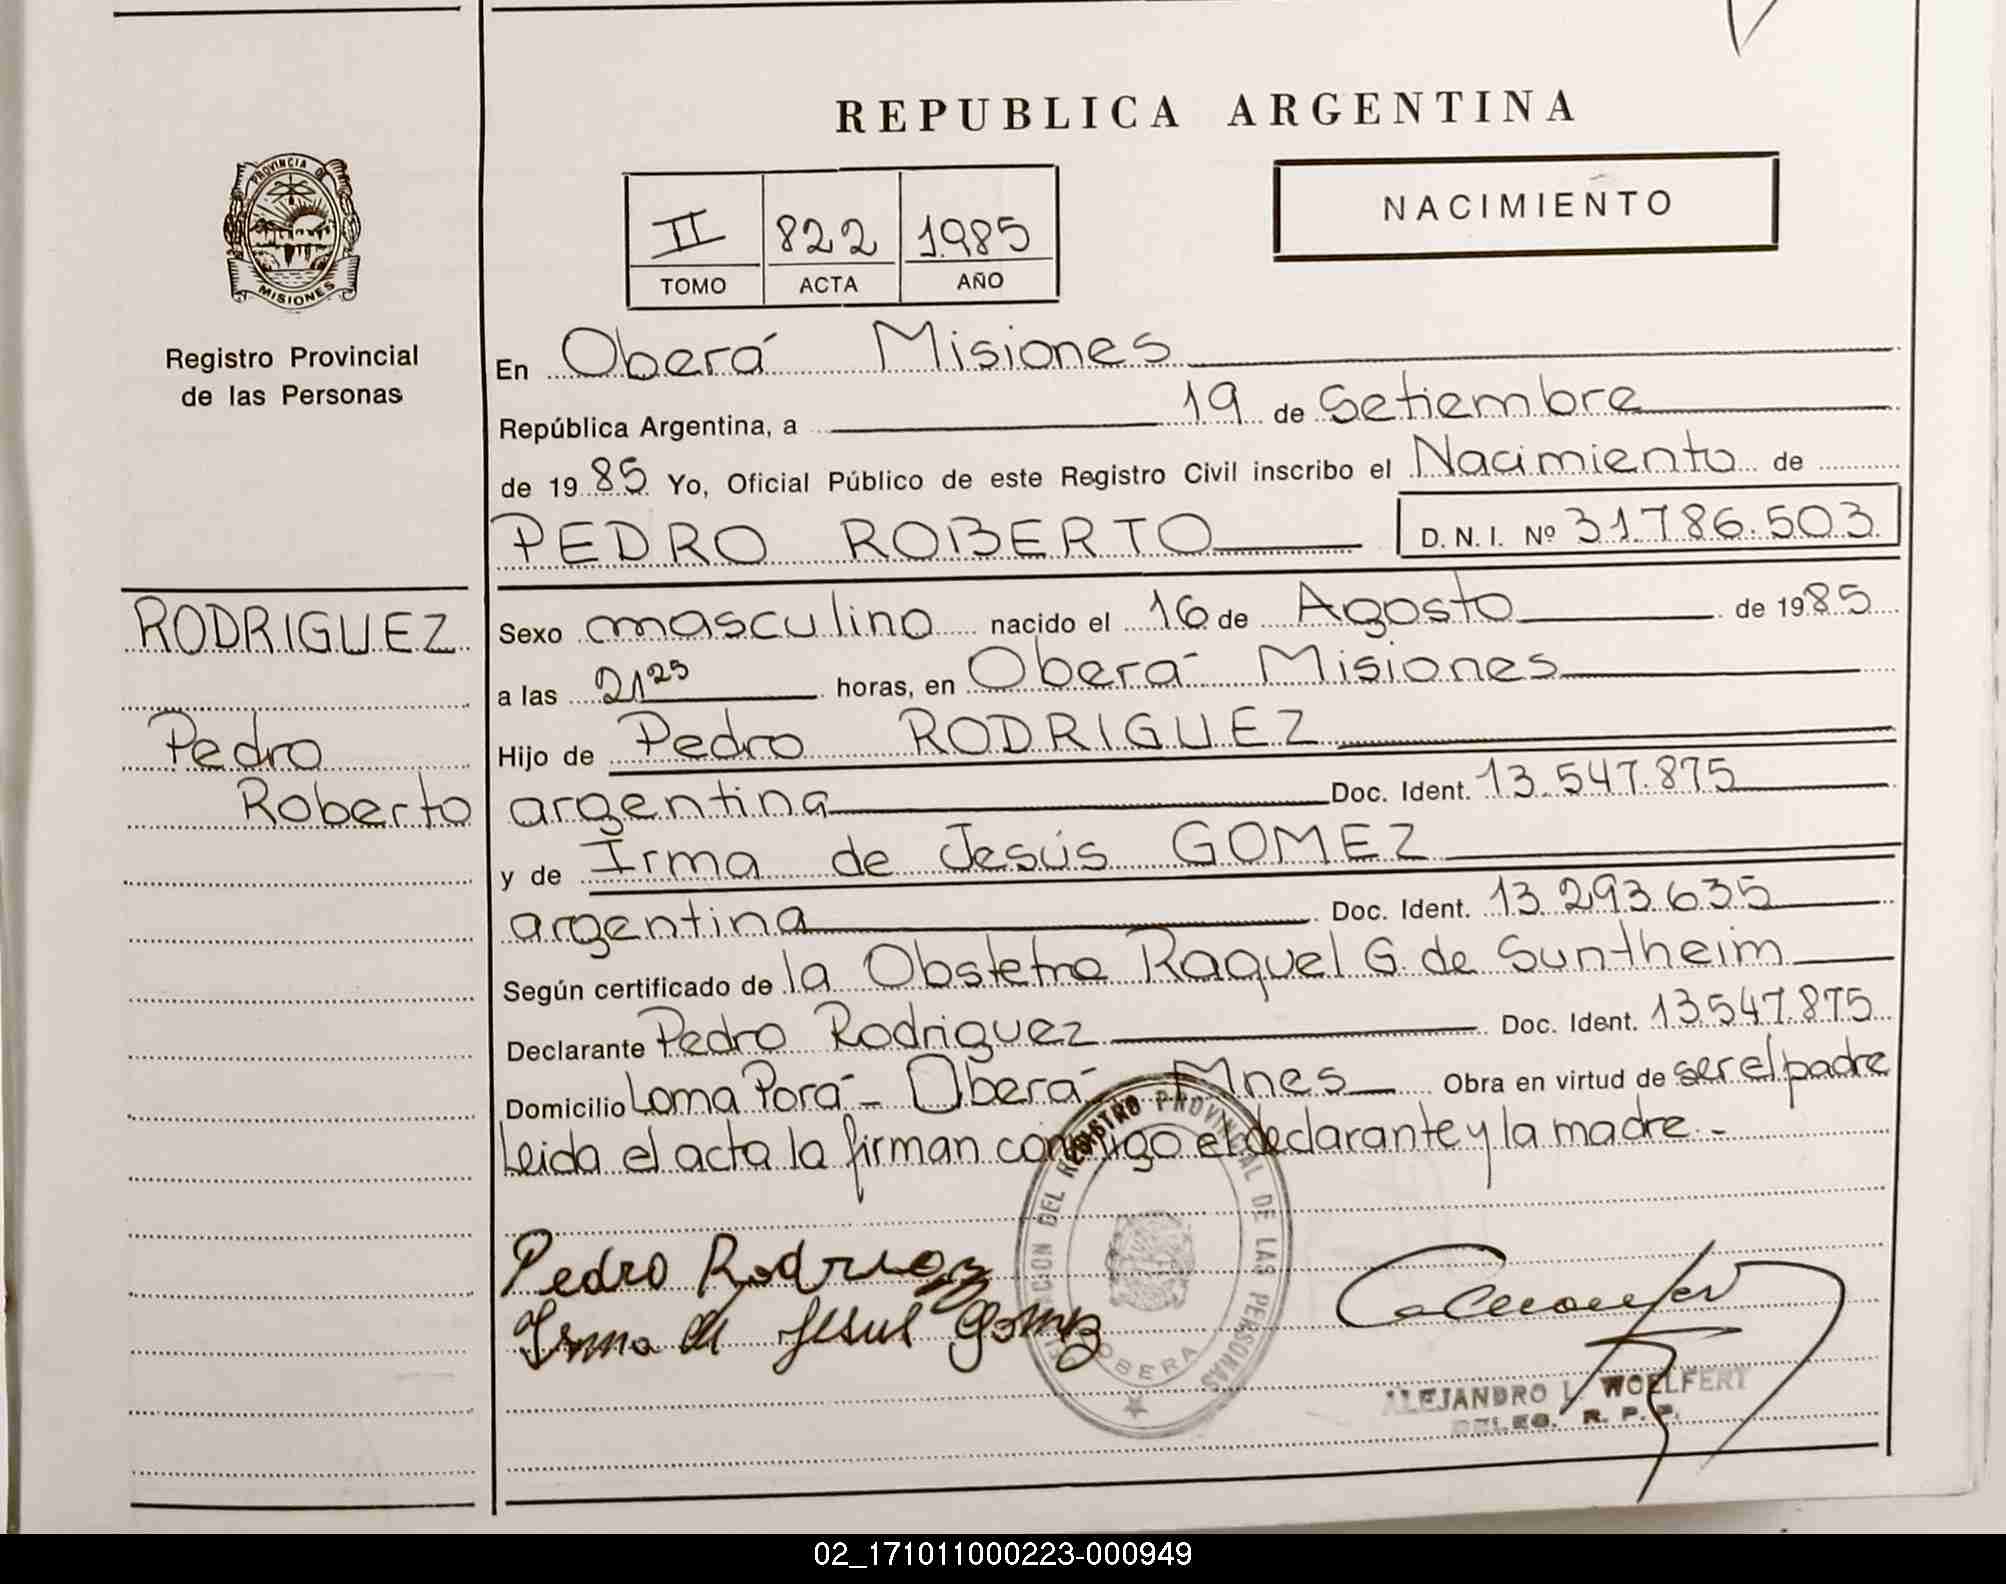 REPUBLICA ARGENTINA
PROVINCIA DE
MISIONES
Registro Provincial
de las Personas
II 822 1985
TOMO ACTA AÑO
NACIMIENTO
En Oberá Misiones
República Argentina, a 19 de Setiembre
de 1985 Yo, Oficial Público de este Registro Civil inscribo el Nacimiento de
PEDRO ROBERTO D.N.I. Nº 31.786.503
RODRIGUEZ
Pedro
Roberto
Sexo masculino nacido el 16 de Agosto de 1985
a las 21 25 horas, en Oberá Misiones
Hijo de Pedro RODRIGUEZ
argentina Doc. Ident. 13.547.875
y de Irma de Jesús GOMEZ
argentina Doc. Ident. 13.293.635
Según certificado de la Obstetra Raquel G. de Suntheim
Declarante Pedro Rodriguez Doc. Ident. 13.547.875
Domicilio Loma Porá - Oberá Mnes Obra en virtud de ser el padre
Leida el acta la firman conmigo el declarante y la madre.-
DEL REGISTRO PROVINCIAL DE LAS PERSONAS
OBERA
Pedro Rodriguez
Irma de Jesus Gomez
ALEJANDRO L. WOELFERT
DELEG. R. P. P.
02_171011000223-000949